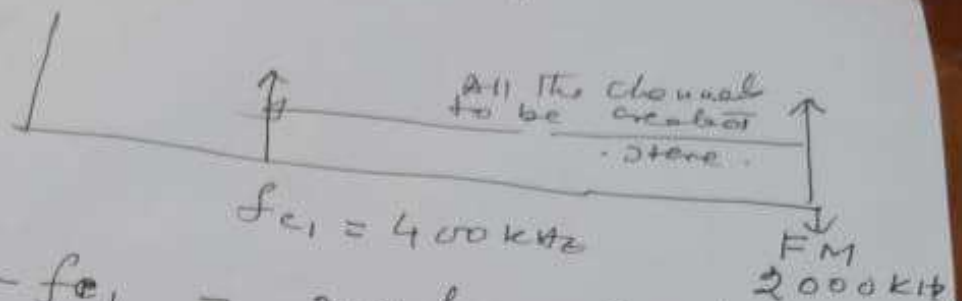 All the channel
to be created
fc1 = 400 kHz
FM
2000 kH
- fc1 =